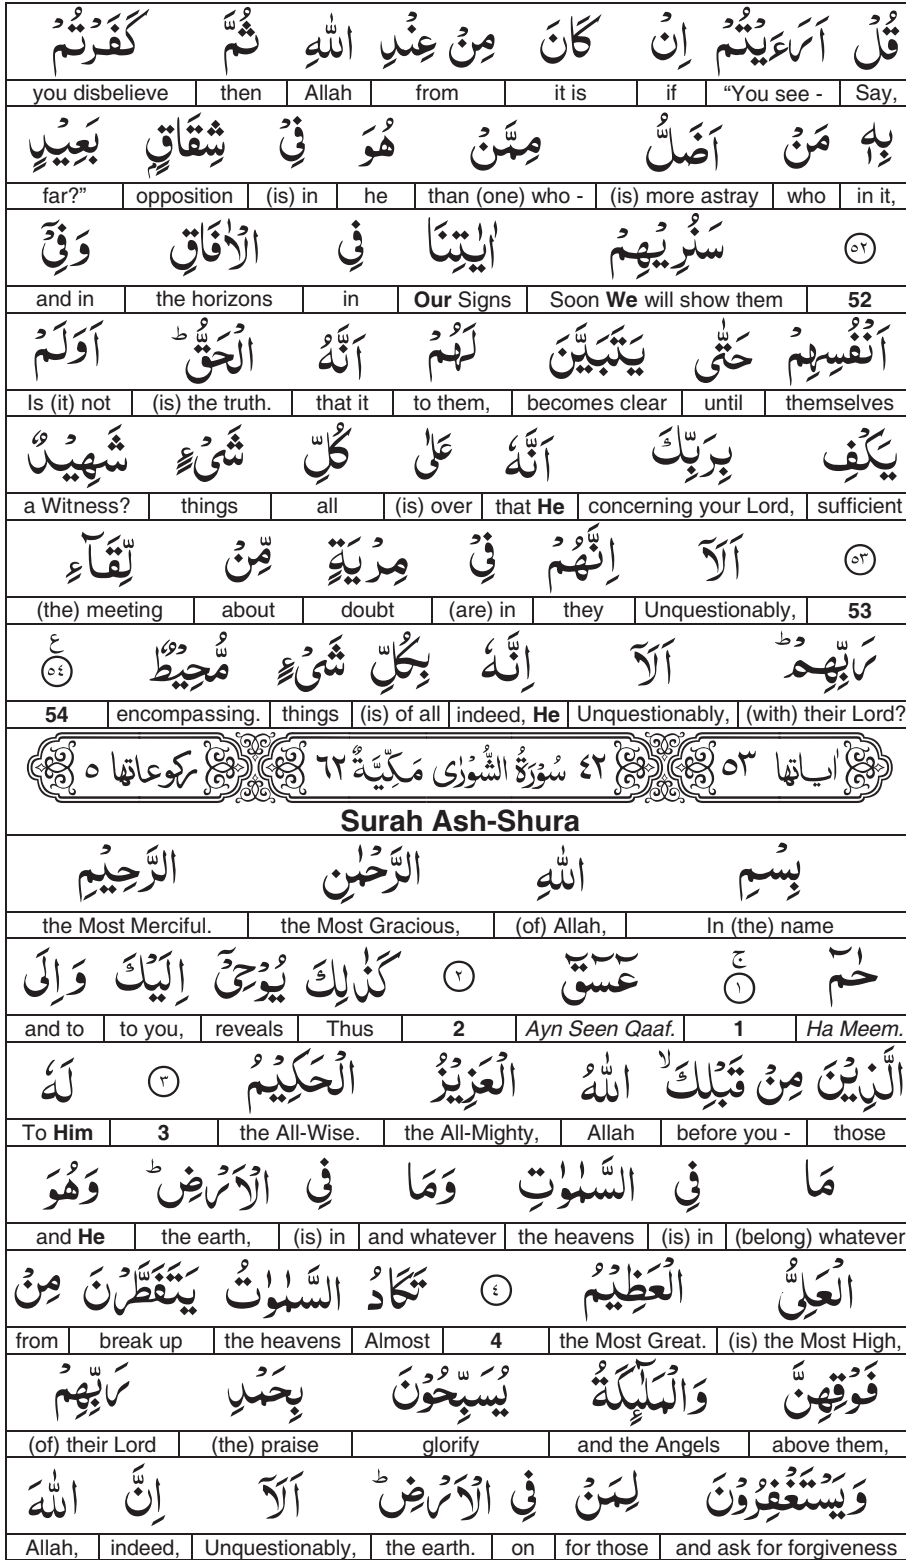 قُلۡ اَرَءَيۡتُمۡ اِنۡ كَانَ مِنۡ عِنۡدِ اللّٰهِ ثُمَّ كَفَرۡتُمۡ
Say, "You see - if it is from Allah then you disbelieve
بِهٖ مَنۡ اَضَلُّ مِمَّنۡ هُوَ فِىۡ شِقَاقٍۭ بَعِيۡدٍ
in it, who (is) more astray than (one) who - he (is) in opposition far?"
٥٢ سَنُرِيۡهِمۡ اٰيٰتِنَا فِى الۡاٰفَاقِ وَفِىۡٓ
52 Soon We will show them Our Signs in the horizons and in
اَنۡفُسِهِمۡ حَتّٰى يَتَبَيَّنَ لَهُمۡ اَنَّهُ الۡحَقُّ‌ ؕ اَوَلَمۡ
themselves until becomes clear to them, that it (is) the truth. Is (it) not
يَكۡفِ بِرَبِّكَ اَنَّهٗ عَلٰى كُلِّ شَىۡءٍ شَهِيۡدٌ
sufficient concerning your Lord, that He (is) over all things a Witness?
٥٣ اَلَاۤ اِنَّهُمۡ فِىۡ مِرۡيَةٍ مِّنۡ لِّقَآءِ
53 Unquestionably, they (are) in doubt about (the) meeting
رَبِّهِمۡ‌ؕ اَلَاۤ اِنَّهٗ بِكُلِّ شَىۡءٍ مُّحِيۡطٌ ٥٤ ع
(with) their Lord? Unquestionably, indeed, He (is) of all things encompassing. 54
اٰیاتها ٥٣ ٤٢ سُوۡرَةُ الشُّوۡرٰى مَكِّيَّةٌ ٦٢ ركوعاتها ٥
Surah Ash-Shura
بِسۡمِ اللّٰهِ الرَّحۡمٰنِ الرَّحِيۡمِ
In (the) name (of) Allah, the Most Gracious, the Most Merciful.
حٰمٓ ‌ۚ‏ ١ عٓسٓقٓ ٢ كَذٰلِكَ يُوۡحِىۡۤ اِلَيۡكَ وَاِلَى
Ha Meem. 1 Ayn Seen Qaaf. 2 Thus reveals to you, and to
الَّذِيۡنَ مِنۡ قَبۡلِكَۙ اللّٰهُ الۡعَزِيۡزُ الۡحَكِيۡمُ ٣ لَهٗ
those before you - Allah the All-Mighty, the All-Wise. 3 To Him
مَا فِى السَّمٰوٰتِ وَمَا فِى الۡاَرۡضِ‌ؕ وَهُوَ
(belong) whatever (is) in the heavens and whatever (is) in the earth, and He
الۡعَلِىُّ الۡعَظِيۡمُ ٤ تَكَادُ السَّمٰوٰتُ يَتَفَطَّرۡنَ مِنۡ
(is) the Most High, the Most Great. 4 Almost the heavens break up from
فَوۡقِهِنَّ وَالۡمَلٰٓٮِٕكَةُ يُسَبِّحُوۡنَ بِحَمۡدِ رَبِّهِمۡ
above them, and the Angels glorify (the) praise (of) their Lord
وَيَسۡتَغۡفِرُوۡنَ لِمَنۡ فِى الۡاَرۡضِ‌ؕ اَلَاۤ اِنَّ اللّٰهَ
and ask for forgiveness for those on the earth. Unquestionably, indeed, Allah,